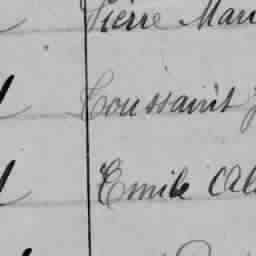 Pierre Mari
Toussaint J
Emile Al